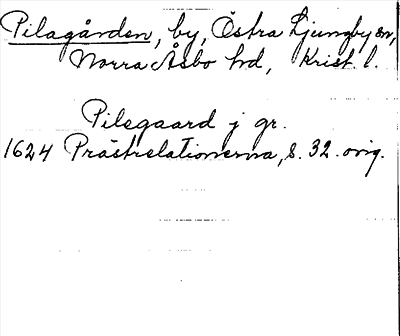 Pilagården, by, Östra Ljungby sn,
Norra Åsbo hd, Krist. l.
Pilegaard j gr.
1624 Prästrelationerna, s. 32. orig.